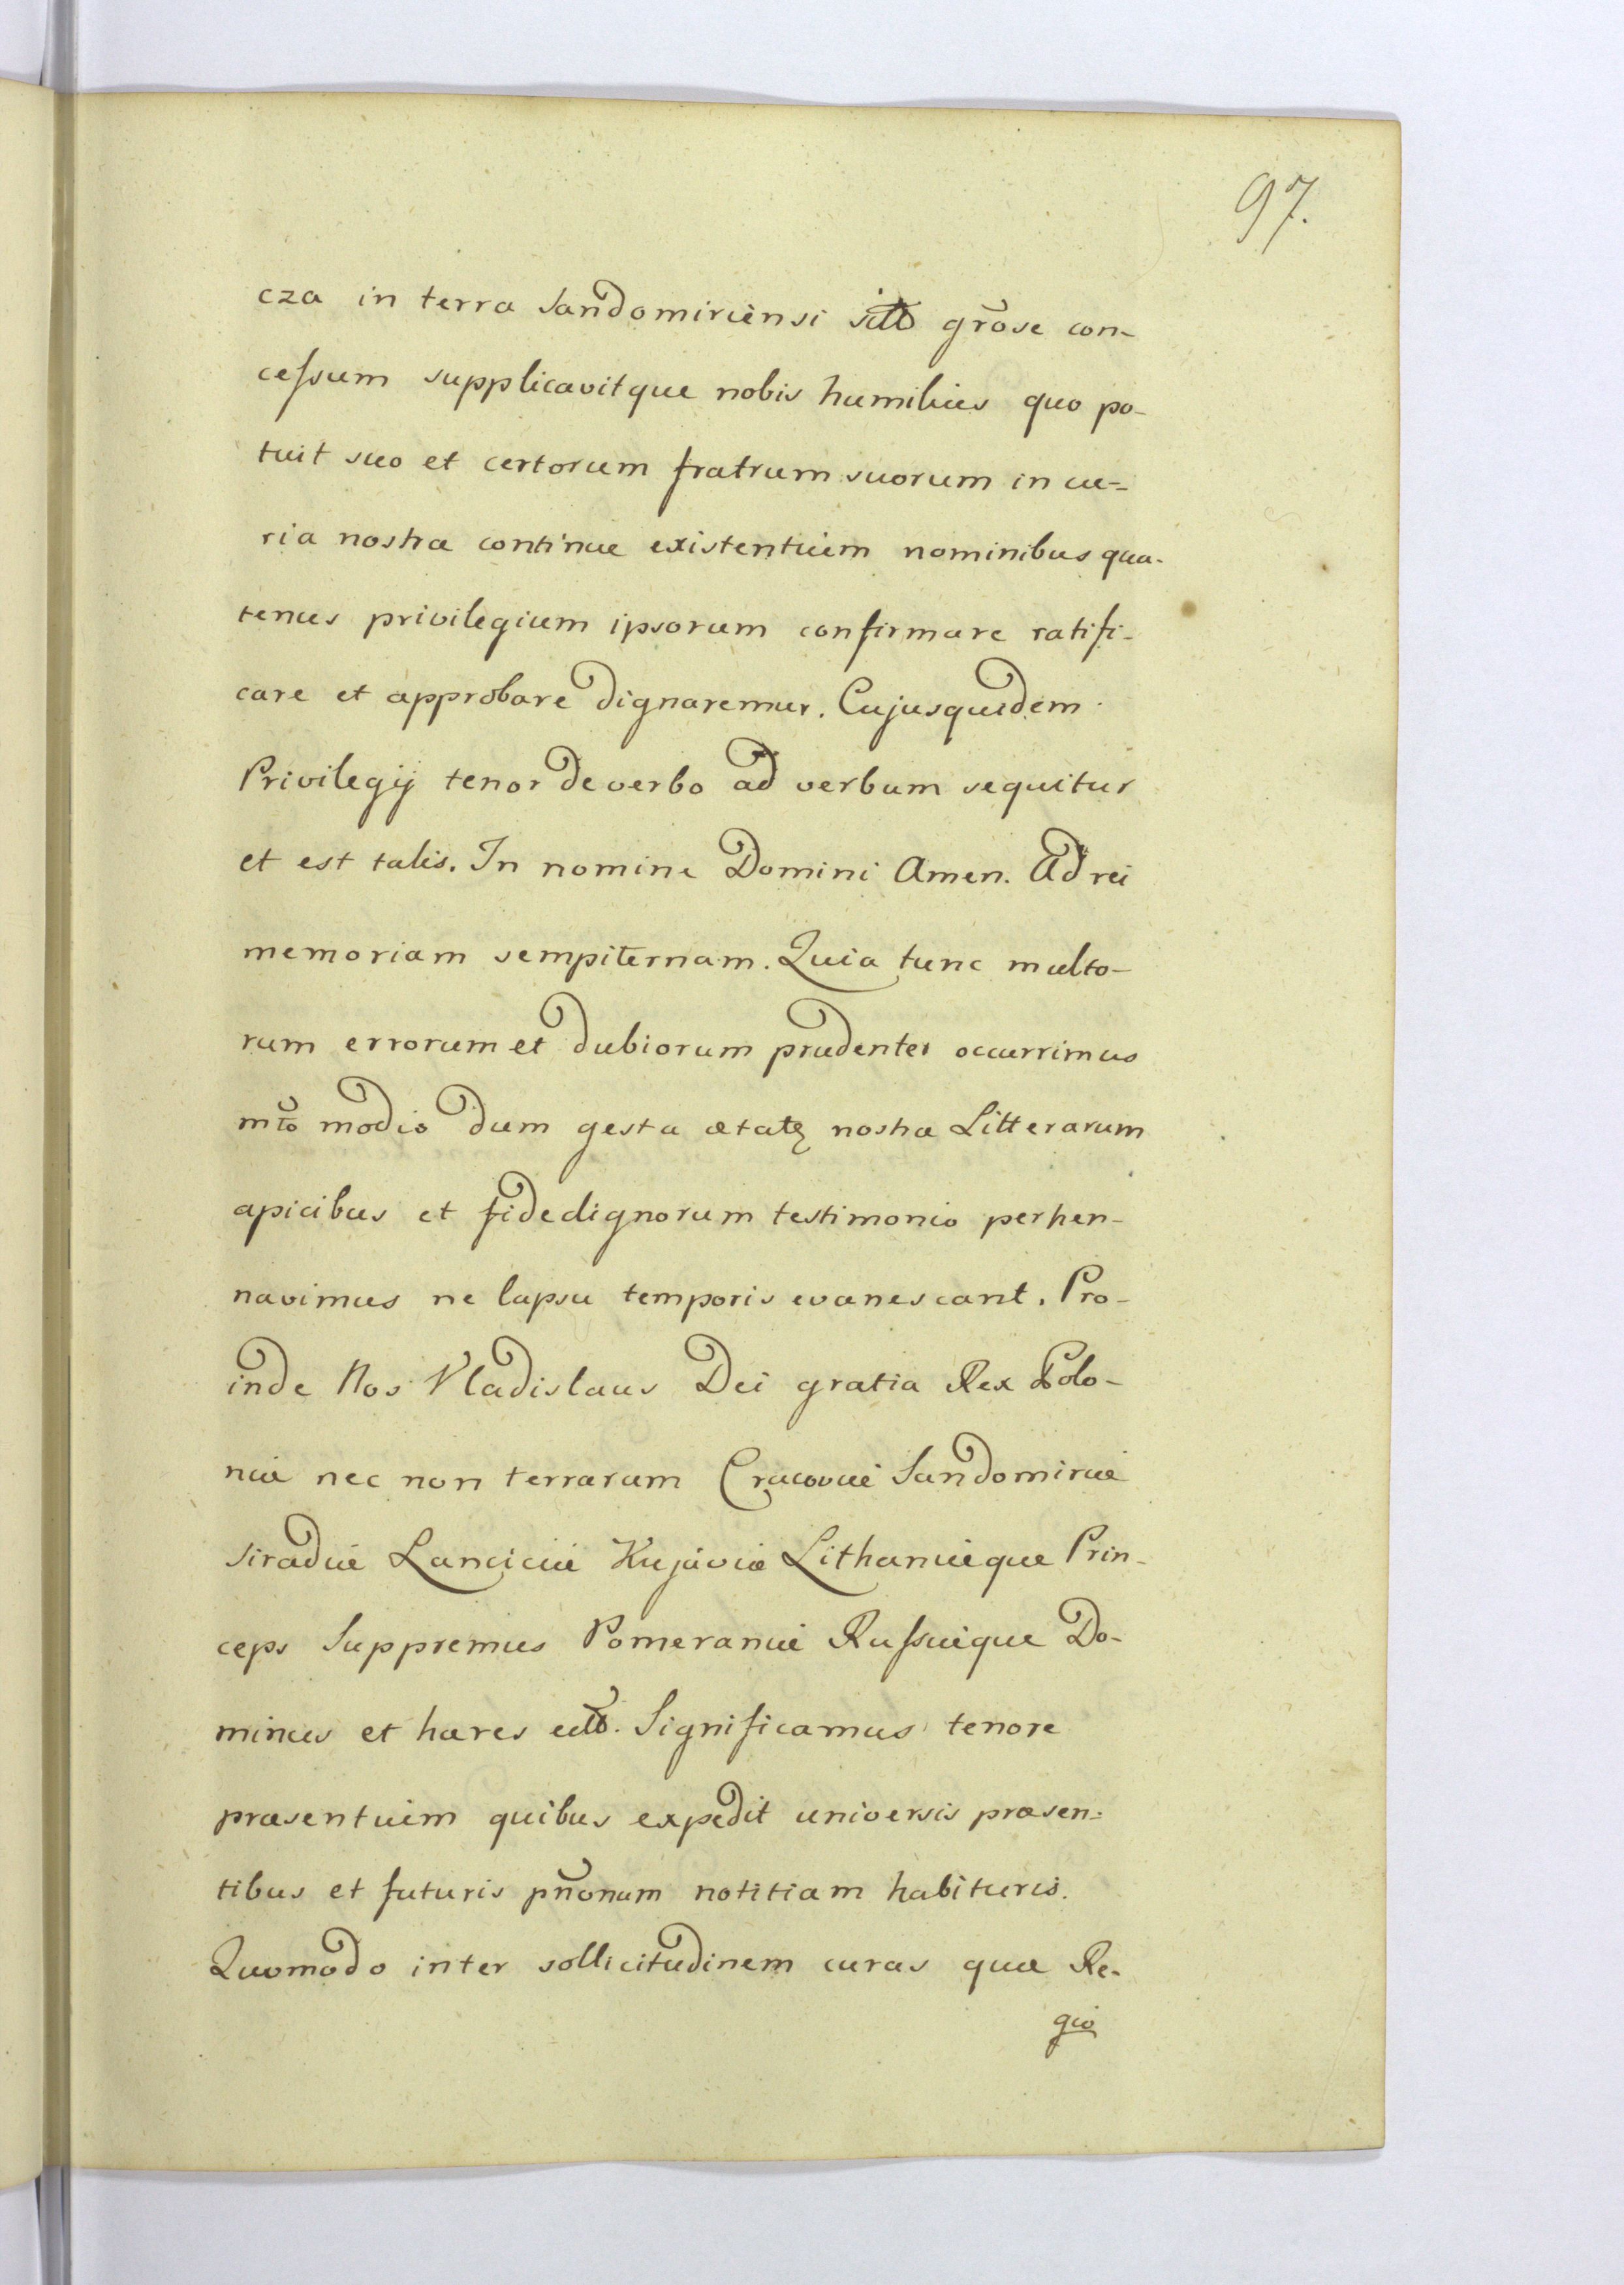 97.
cza in terra Sandomiriensi sito grose con-
cessum supplicavitque nobis humilius quo po-
tuit suo et certorum fratrum suorum in cu-
ria nostra continue existentium nominibus qua-
tenus privilegium ipsorum confirmare ratifi-
care et approbare dignaremur. Cujusquidem
Privilegij tenor de verbo ad verbum sequitur
et est talis. In nomine Domini Amen. Ad rei
memoriam sempiternam. Quia tunc multo-
rum errorum et dubiorum prudenter occurrimus
modio dum gesta ætatis nostræ Litterarum
apicibus et fidedignorum testimonio perhen-
navimus ne lapsu temporis evanescant. Pro-
inde Nos Vladislaus Dei gratia Rex Polo-
niæ nec non terrarum Cracoviæ Sandomiriæ
Siradiæ Lanciciæ Kujaviæ Lithaniæque Prin-
ceps Suppremus Pomeraniæ Russiæque Do-
minus et hæres Significamus tenore
præsentium quibus expedit universis præsen-
tibus et futuris notitiam habituris.
Quomodo inter sollicitudinem curas quæ Re-
gio